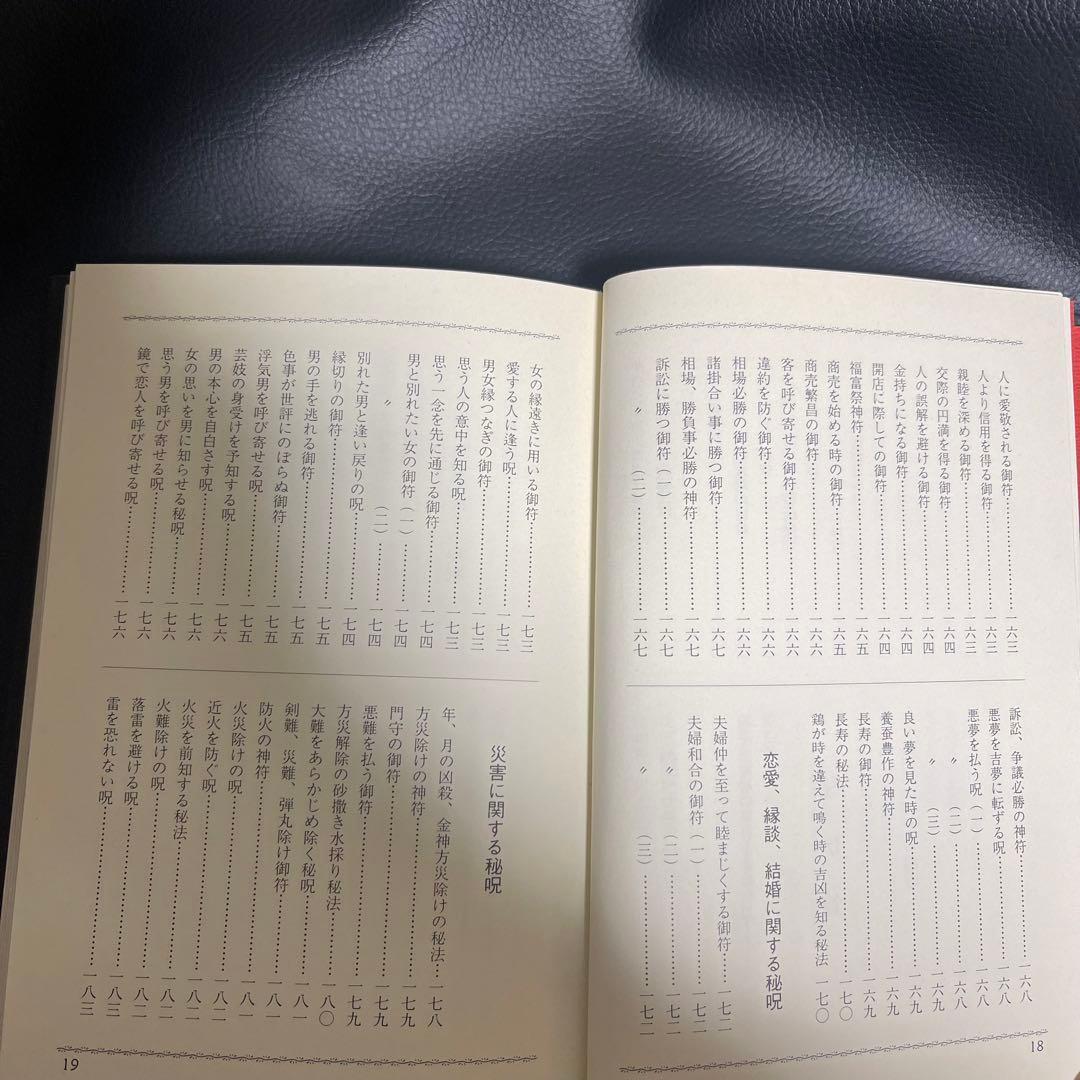 人に愛敬される御符……一六三
人より信用を得る御符……一六三
親睦を深める御符……一六三
交際の円満を得る御符……一六四
人の誤解を避ける御符……一六四
金持ちになる御符……一六四
開店に際しての御符……一六四
福富祭神符……一六四
商売を始める時の御符……一六五
商売繁昌の御符……一六六
客を呼び寄せる御符……一六六
違約を防ぐ御符……一六六
相場必勝の御符……一六六
諸掛合い事に勝つ御符……一六七
相場、勝負事必勝の神符……一六七
訴訟に勝つ御符(一)……一六七
〃(二)……一六七
訴訟、争議必勝の神符……一六八
悪夢を吉夢に転ずる呪……一六八
悪夢を払う呪(一)……一六八
〃(二)……一六八
〃(三)……一六九
良い夢を見た時の呪……一六九
養蚕豊作の神符……一六九
長寿の御符……一六九
長寿の秘法……一七〇
鶏が時を違えて鳴く時の吉凶を知る秘法 一七〇
恋愛、縁談、結婚に関する秘呪
夫婦仲を至って睦まじくする御符……一七二
夫婦和合の御符(一)……一七二
〃(二)……一七二
〃(三)……一七二
18
女の縁遠きに用いる御符……一七三
愛する人に逢う呪……一七三
男女縁つなぎの御符……一七三
思う人の意中を知る呪……一七三
思う一念を先に通じる御符……一七四
男と別れたい女の御符(一)……一七四
〃(二)……一七四
別れた男と逢い戻りの呪……一七四
縁切りの御符……一七五
男の手を逃れる御符……一七五
色事が世評にのぼらぬ御符……一七五
浮気男を呼び寄せる呪……一七五
芸妓の身受けを予知する呪……一七六
男の本心を自白さす呪……一七六
女の思いを男に知らせる秘呪……一七六
思う男を呼び寄せる呪……一七六
鏡で恋人を呼び寄せる呪……一七六
災害に関する秘呪
年、月の凶殺、金神方災除けの秘法……一七八
方災除けの神符……一七九
門守の御符……一七九
悪難を払う御符……一七九
方災解除の砂撒き水採り秘法……一八〇
大難をあらかじめ除く秘呪……一八一
剣難、災難、弾丸除け御符……一八一
防火の神符……一八一
火災除けの呪……一八二
近火を防ぐ呪……一八二
火災を前知する秘法……一八二
火難除けの呪……一八二
落雷を避ける呪……一八三
雷を恐れない呪……一八三
19